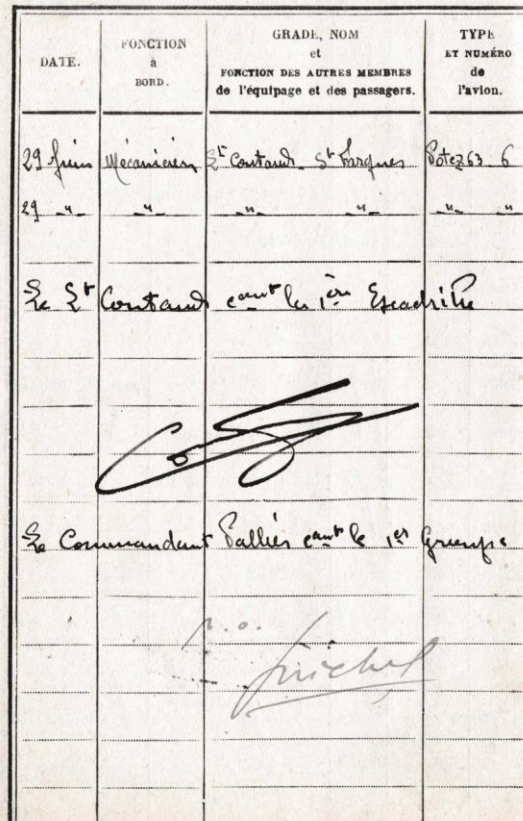 DATE. FONCTION à BORD. GRADE, NOM et FONCTION DES AUTRES MEMBRES de l'équipage et des passagers. TYPE ET NUMÉRO de l'avion.
29 Juin Mécanicien Lt Coutaud St Potez 63 6
29 -"- -"- -"- -"- -"- "
Le Lt Coutaud cant la 1ère Escadrille
Le Commandant Pallier cant le 1er Groupe
p.o.
Michel